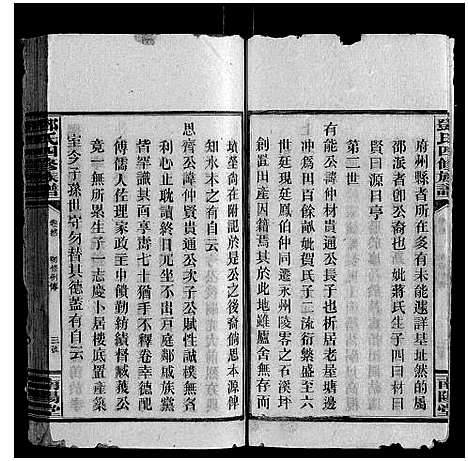 鄧氏四修族譜
南陽堂
府州縣者所在多有未能遽詳是址然的屬
邵派者卽公裔也 妣蔣氏生子四曰材曰
賢曰源曰亨
第二世
有能公諱仲材貴通公長子也析居老屋塘邊
冲爲田百餘畝妣賀氏子三流衍繁盛至六
世廷現廷鳳伯仲同遷永州陵零之石溪坪
創置田產因籍焉其於此地雖廬舍無存而
墳塋尚在附記於是公之後裔倘思本源俾
知水木之有自云
思齊公諱仲賢貴通次子公賦性誠樸無閒
利心止耽讀終日兀坐不出戶庭鄰戚族黨
皆罕識其面享壽七十猶手不釋卷幸德配
傅儒人佐理家政主中饋勤紡績督臧獲代
竟一無所累生子一志慶卜居樓底置產築
室至今子孫世守勿替其德蓋有自云
鄧氏四修族譜
南陽堂